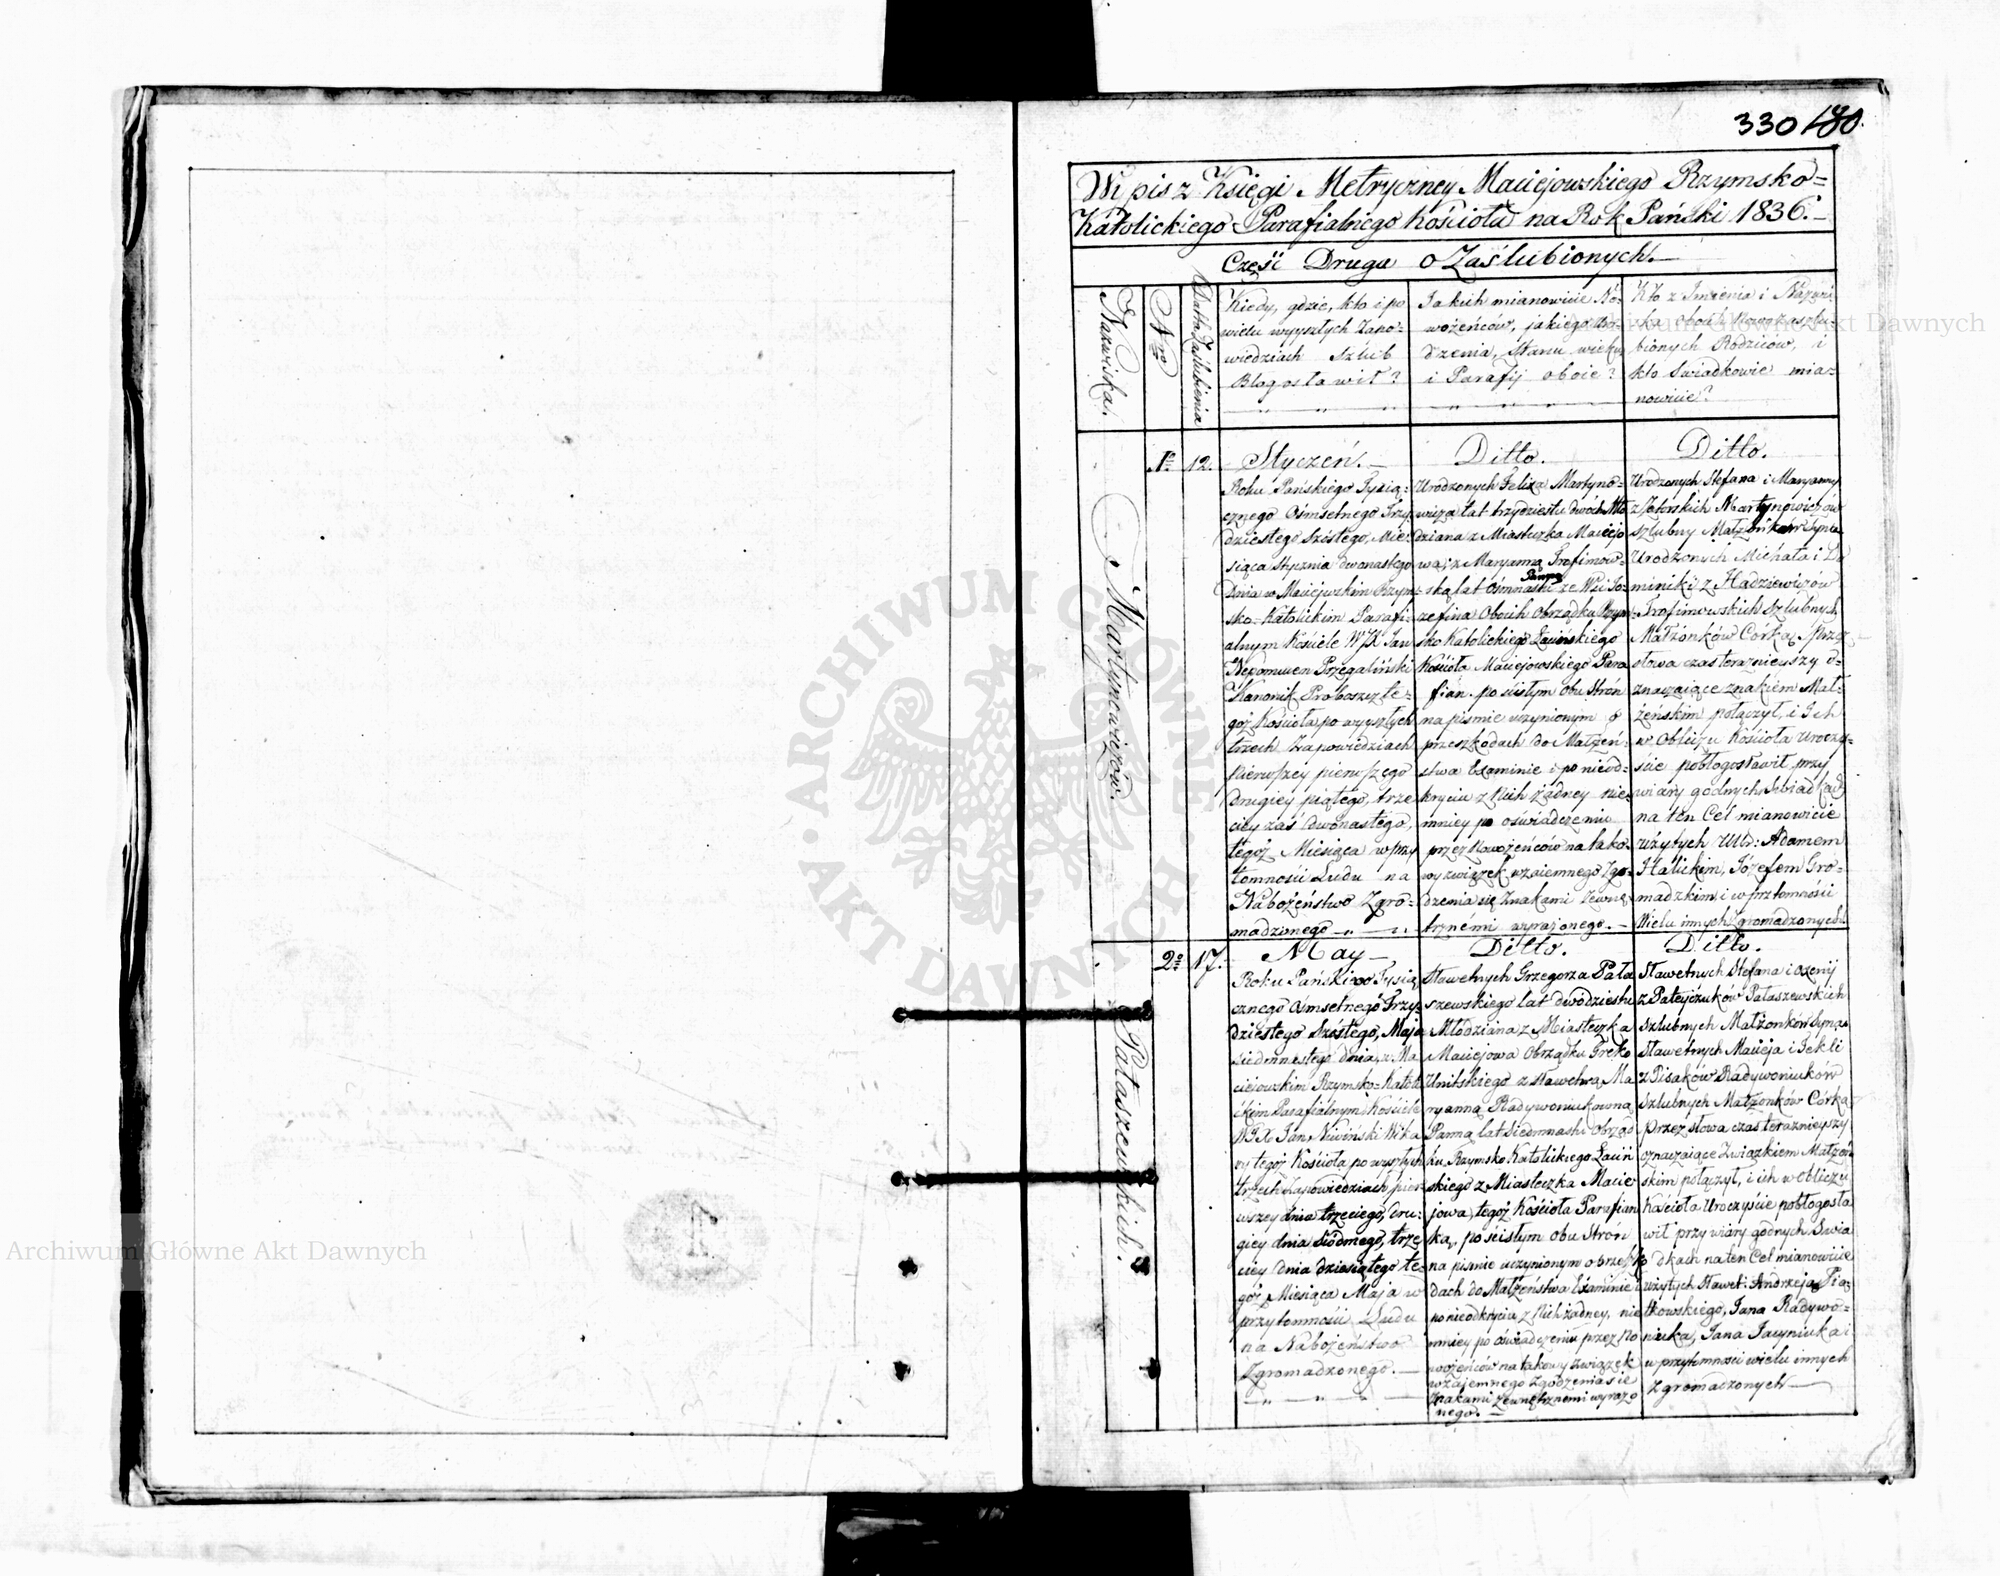 330 180.
Wypis z Księgi Metryczney Maciejowskiego Rzymsko=
Katolickiego Parafialnego Kościoła na Rok Pański 1836.
Część Druga o Zaślubionych.
Nazwiska.
Nro
Datta Zaślubienia
Kiedy, gdzie, kto i po
wielu wyszłych Zapo-
wiedziach Szlub
Błogosławił?
Jakich mianowicie No-
wożeńców, jakiego Uro-
dzenia, Stanu wieku,
i Parafij oboie?
Kto z Imienia i Nazwi
ska oboich Nowozaszlu-
bionych Rodziców, i
kto Swiadkowie mia-
nowicie?
Martynowiczów.
1o
12.
Styczeń.
Roku Pańskiego Tysią-
cznego Ośmsetnego Trzy
dziestego Szóstego, Mie-
siąca Stycznia dwonastego
Dnia w Maciejowskim Rzym-
sko-Katolickim Parafi-
alnym Kościele WJX Jan
Nepomucen Przegaliński
Kanonik Proboszcz te-
goż Kościoła po wyszłych
trzech Zapowiedziach
pierwszey pierwszego
drugiey piątego, trze
ciey zaś dwonastego,
tegoż Miesiąca w przy
tomności Ludu na
Nabożeństwo Zgro-
madzonego
Ditto.
Urodzonych Felixa Martyno-
wicza lat trzydziestu dwóch Mło
dziana z Miasteczka Maciejo
wa, z Maryanną Trofimow-
Panną
ską lat Ośmnastu ze Wsi Jo-
zefina Oboich Obrządku Rzym-
sko Katolickiego Łacińskiego
Kościoła Maciejowskiego Para
fian. po ścisłym Obu Strón
na piśmie uczynionym o
przeszkodach do Małżeń-
stwa Examinie i po nieod-
kryciu z Nich żadney nie-
mniey po oświadczeniu
przez Nowożeńców na tako-
wy związek wzaiemnego Zgo-
dzenia się Znakami Zewnę-
trznemi wyrażonego.
Ditto.
Urodzonych Stefana i Maryanny
z Jaworskich Martynowiczów
szlubny Małżonków Syna
Urodzonych Michała i Do
miniki z Hadziewiczow
Trofimowskich Szlubnych
Małżonków Córką, Przez
słowa czas teraznieyszy o-
znaczaiące znakiem Mał-
żeńskim połączył, i Ich
w Obliczu Kościoła Uroczy-
ście pobłogosławił przy
wiary godnych Swiadkach
na ten Cel mianowicie
użytych Ur: Adamem
Halickim, Józefem Gro-
madzkim i w przytomności
Wielu innych Zgromadzonych.
Pataszewskich.
2o
17.
May
Roku Pańskiego Tysią
cznego Ośmsetnego Trzy-
dziestego Szóstego, Maja
siedmnastego dnia, w Ma
ciejowskim Rzymsko-Katoli
ckim Parafialnym Kościele
WJX Jan Niwiński Wika
ry tegoż Kościoła po wyszłych
trzech Zapowiedziach, pier
wszey dnia trzeciego, dru-
giey dnia siódmego, trze
ciey dnia dziesiątego te-
goż Miesiąca Maja w
przytomności Ludu
na Nabożeństwo
Zgromadzonego.
Ditto.
Sławetnych Grzegorza Pata
szewskiego lat dwódziestu
Młodziana z Miasteczka
Maciejowa Obrządku Greko
Unitskiego z Sławetną Ma
ryanną Radywoniukowną
Panną lat Siedmnastu Obrząd
ku Rzymsko Katolickiego Łaciń
skiego z Miasteczka Macie
jowa, tegoż Kościoła Parafian
ką, po ścisłym Obu Strón
na piśmie uczynionym o przeszko
dach do Małżeństwa Examinie i
po nieodkryciu z Nich żadney, nie
mniey po oświadczeniu przez No
wożeńców na takowy związek
wzajemnego Zgodzenia sie
Znakami Zewnętrznemi wyrażo
nego.
Ditto.
Sławetnych Stefana i Oxenij
z Pateyczuków Pataszewskich
Szlubnych Małżonków Syna
Sławetnych Macieja i Tekli
z Pisaków Radywoniukow
Szlubnych Małżonków Córką
Przez słowa czas teraznieyszy
oznaczaiące Zwiazkiem Małżeń
skim połączył, i ich w Obliczu
Kościoła Uroczyście pobłogosła
wił przy wiary godnych Swia
dkach na ten Cel mianowicie
użytych Sławet: Andrzeja Pią-
tkowskiego, Jana Radywo-
niuka, Jana Jacyniuka i
w przytomności wielu innych
Zgromadzonych
ARCHIWUM GŁÓWNE AKT DAWNYCH
Archiwum Główne Akt Dawnych
Archiwum Główne Akt Dawnych